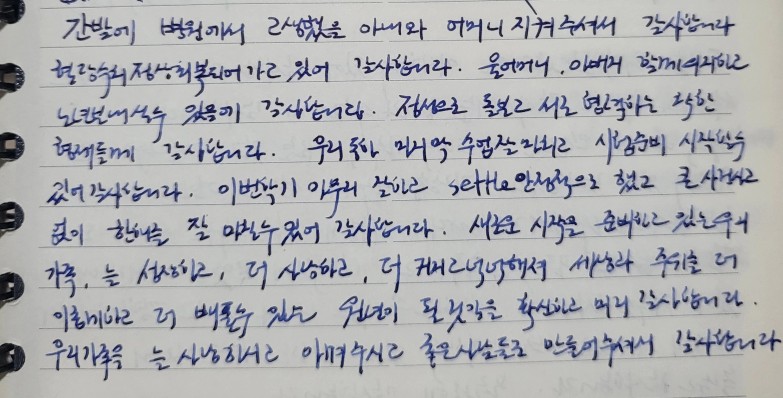 간밤에 병원에서 고생했을 아내와 어머니 지켜주셔서 감사합니다
혈당수치 정상회복되어가고 있어 감사합니다. 울어머니, 아버지 함께의지하고
노년보내실수 있음에 감사합니다. 정성으로 돌보고 서로 협력하는 착한
형제들께 감사합니다. 우리 마지막 수업잘마치고 시험준비 시작할수
있어감사합니다. 이번학기 마무리 잘하고 settle안정적으로 했고 큰사건사고
없이 한해를 잘 마칠수있어 감사합니다. 새로운 시작을 준비하고 있는우리
가족, 늘 성장하고, 더 사랑하고, 더 커지고넉넉해져 세상과 주위를 더
이롭게하고 더 베풀수 있는 원년이 될것같은 확신하고 미리 감사합니다.
우리가족을 늘 사랑하시고 아껴주시고 좋은사람들로 만들어주셔서 감사합니다